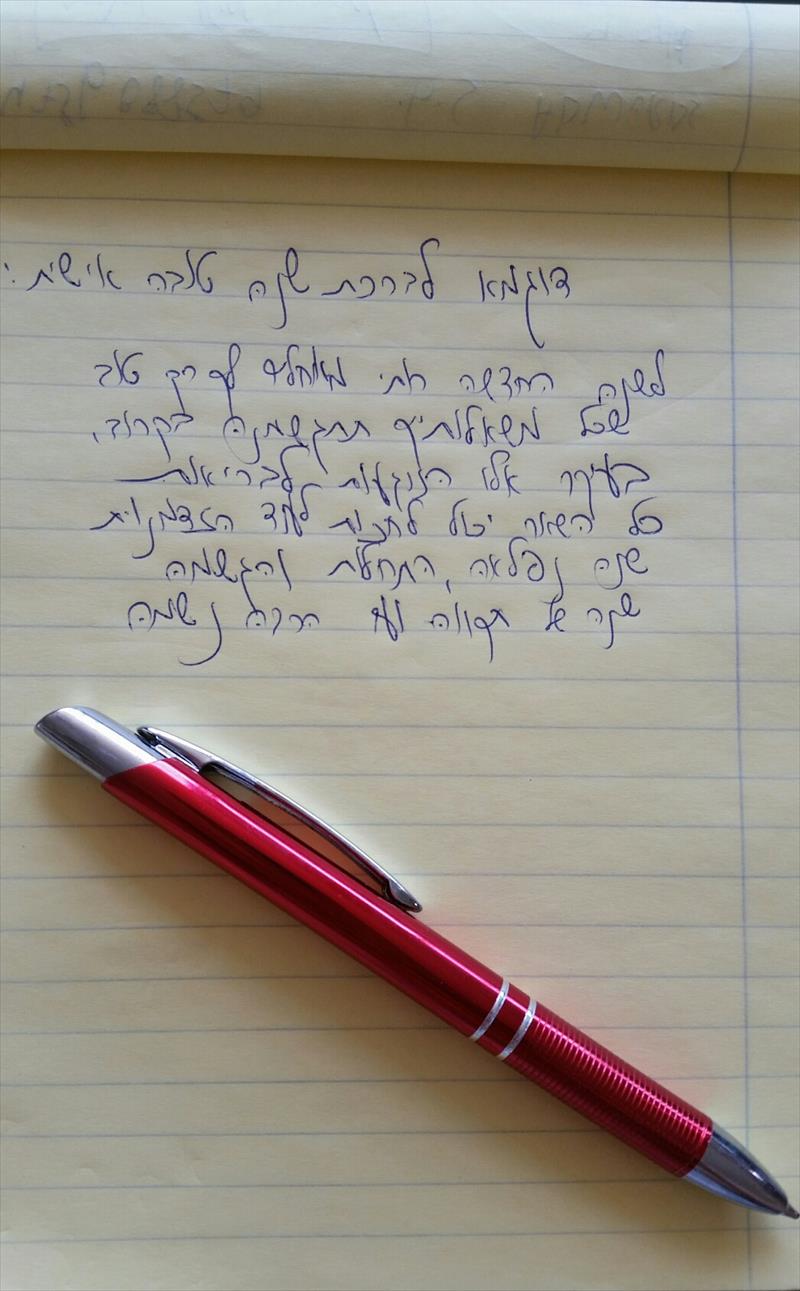 דוגמא לברכת שנה טובה אישית:
לשנה החדשה רותי מאחלים לך רק טוב
שכל משאלותיך תתגשמנה בקרוב,
בעיקר אלו הנוגעות לבריאות
כל השאר יכול לחכות לעוד הזדמנויות
שנה נפלאה, התחלות והגשמה
שנה של תקווה ועד הרבה נשמה